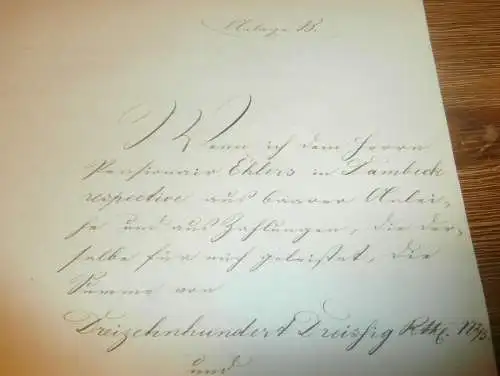 Anlage B.
Wenn ich dem Herrn
Pensionair Ehlers in Dambeck
respective aus baarer Anlei-
he und aus Zahlungen, die der-
selbe für mich geleistet, die
Summe von
Dreizehnhundert Dreissig Rthl. N2/3
und